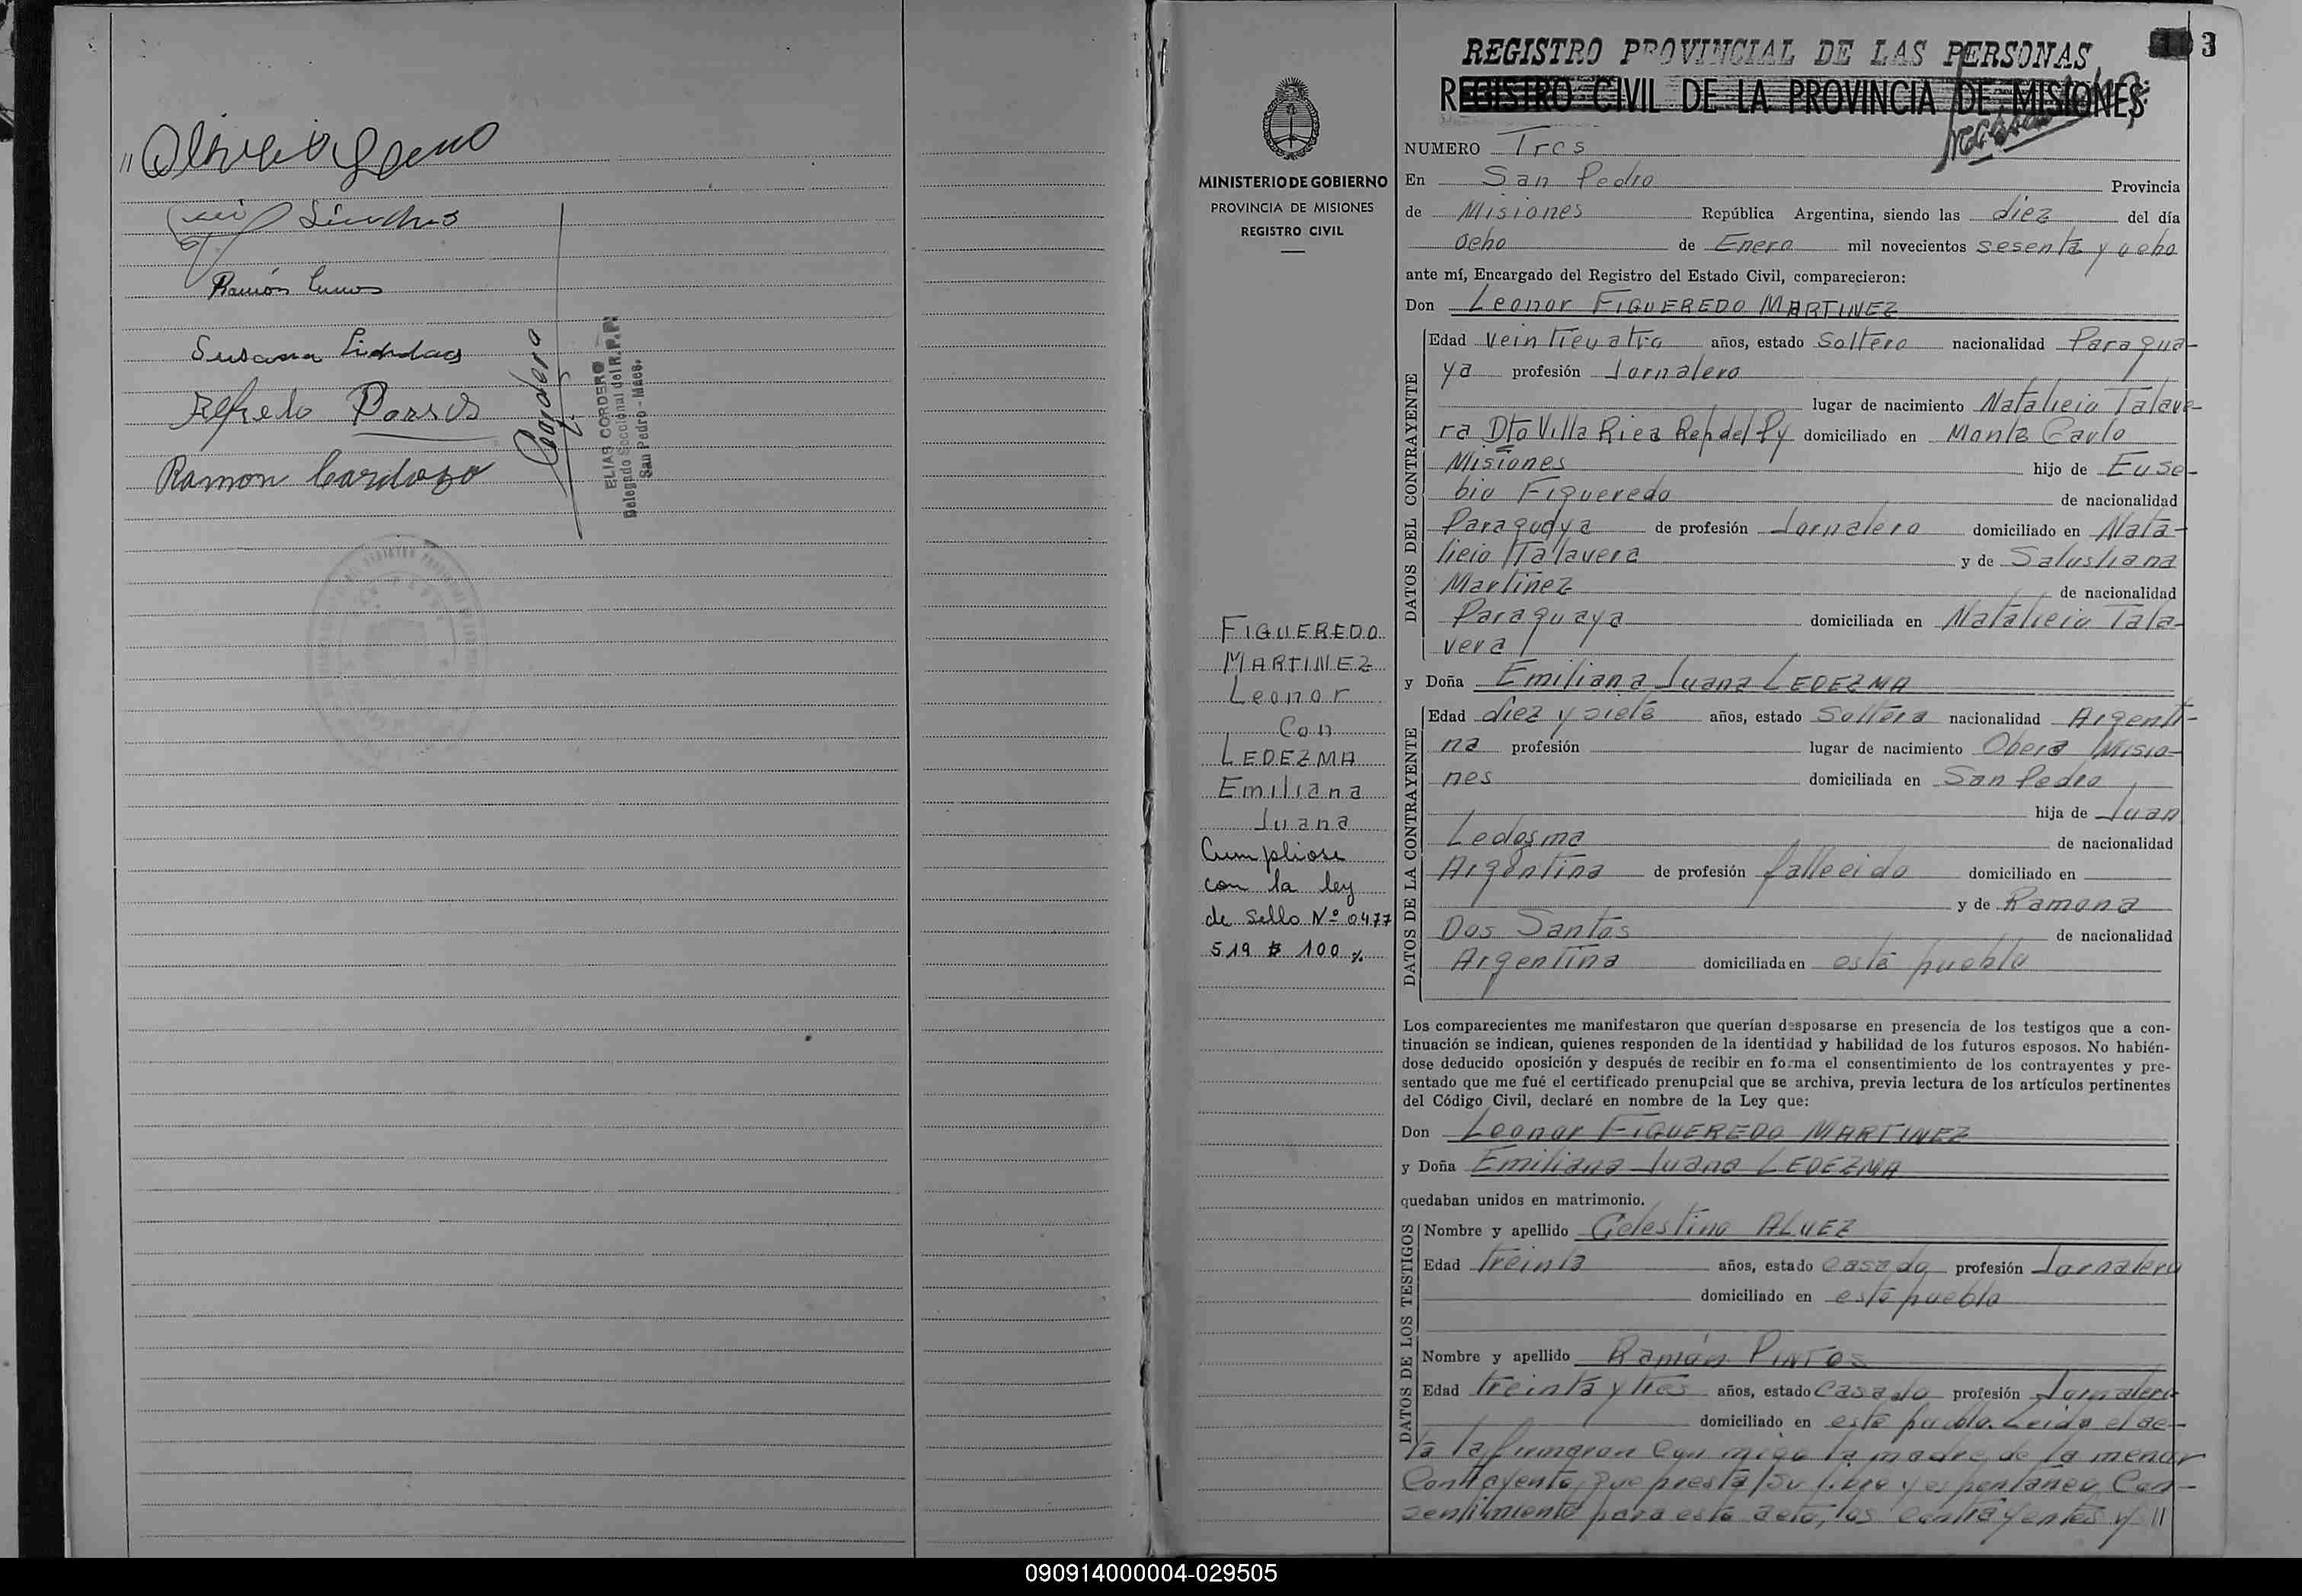 Ramón
Susana
Alfredo
Ramon Cardozo
Cordero
ELIAS CORDERO
Delegado Seccional del R.P.P.
San Pedro - Mnes.
3
REGISTRO PROVINCIAL DE LAS PERSONAS
REGISTRO CIVIL DE LA PROVINCIA DE MISIONES
MINISTERIO DE GOBIERNO
PROVINCIA DE MISIONES
REGISTRO CIVIL
FIGUEREDO
MARTINEZ
Leonor
Con
LEDEZMA
Emiliana
Juana
Cumpliose
con la ley
de sello Nº 0477
519 $ 100 %
NUMERO Tres
En San Pedro Provincia
de Misiones República Argentina, siendo las diez del día
ocho de Enero mil novecientos sesenta y ocho
ante mí, Encargado del Registro del Estado Civil, comparecieron:
Don Leonor FIGUEREDO MARTINEZ
DATOS DEL CONTRAYENTE
Edad veinticuatro años, estado Soltero nacionalidad Paragua-
ya profesión Jornalero
lugar de nacimiento Natalicio Talave-
ra Dto Villa Rica Rep del Py domiciliado en Monte Carlo
Misiones hijo de Euse-
bio Figueredo de nacionalidad
Paraguaya de profesión Jornalero domiciliado en Nata-
licio Talavera y de Salustiana
Martinez de nacionalidad
Paraguaya domiciliada en Natalicio Tala-
vera
y Doña Emiliana Juana LEDEZMA
DATOS DE LA CONTRAYENTE
Edad diez y siete años, estado Soltera nacionalidad Argenti-
na profesión lugar de nacimiento Obera Misio-
nes domiciliada en San Pedro
hija de Juan
Ledesma de nacionalidad
Argentina de profesión fallecido domiciliado en
y de Ramona
Dos Santos de nacionalidad
Argentina domiciliada en este pueblo
Los comparecientes me manifestaron que querían desposarse en presencia de los testigos que a con-
tinuación se indican, quienes responden de la identidad y habilidad de los futuros esposos. No habién-
dose deducido oposición y después de recibir en forma el consentimiento de los contrayentes y pre-
sentado que me fué el certificado prenupcial que se archiva, previa lectura de los artículos pertinentes
del Código Civil, declaré en nombre de la Ley que:
Don Leonor FIGUEREDO MARTINEZ
y Doña Emiliana Juana LEDEZMA
quedaban unidos en matrimonio.
DATOS DE LOS TESTIGOS
Nombre y apellido Celestino ALVEZ
Edad treinta años, estado casado profesión Jornalero
domiciliado en este pueblo
Nombre y apellido Ramón PINTOS
Edad treinta y tres años, estado Casado profesión Jornalero
domiciliado en este pueblo. Leida el ac-
ta la firmaron conmigo la madre de la menor
Contrayente, que presta su libre y espontaneo Con-
sentimiento para este acto, los contrayentes y //
090914000004-029505